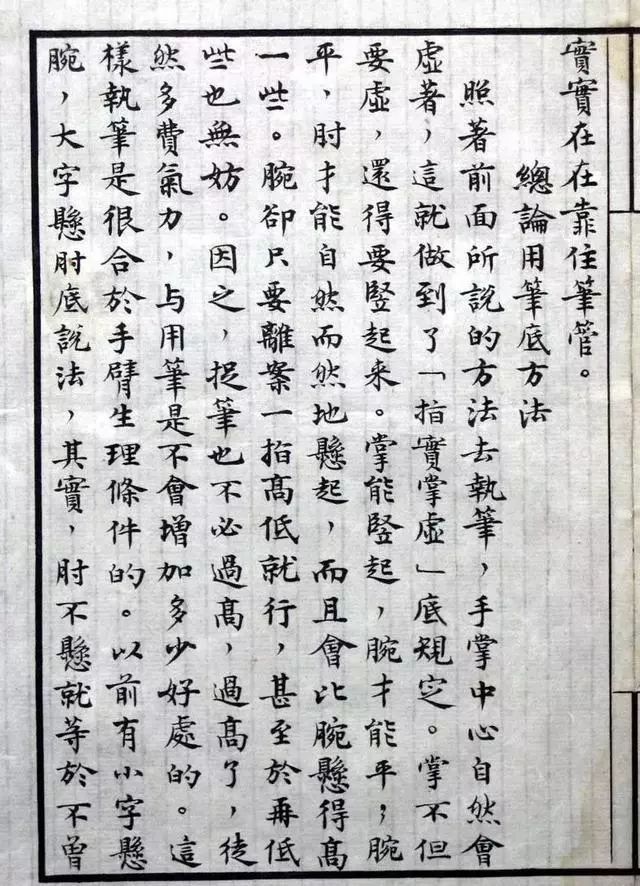 實實在在靠住筆管。
總論用筆底方法
照著前面所說的方法去執筆，手掌中心自然會
虛著，這就做到了「指實掌虛」底規定。掌不但
要虛，還得要豎起来。掌能豎起，腕才能平；腕
平，肘才能自然而然地懸起，而且會比腕懸得高
一些。腕卻只要離案一指高低就行，甚至於再低
些也無妨。因之，捉筆也不必過高，過高了，徒
然多費氣力，与用筆是不會增加多少好處的。這
樣執筆是很合於手臂生理條件的。以前有小字懸
腕，大字懸肘底說法，其實，肘不懸就等於不曾